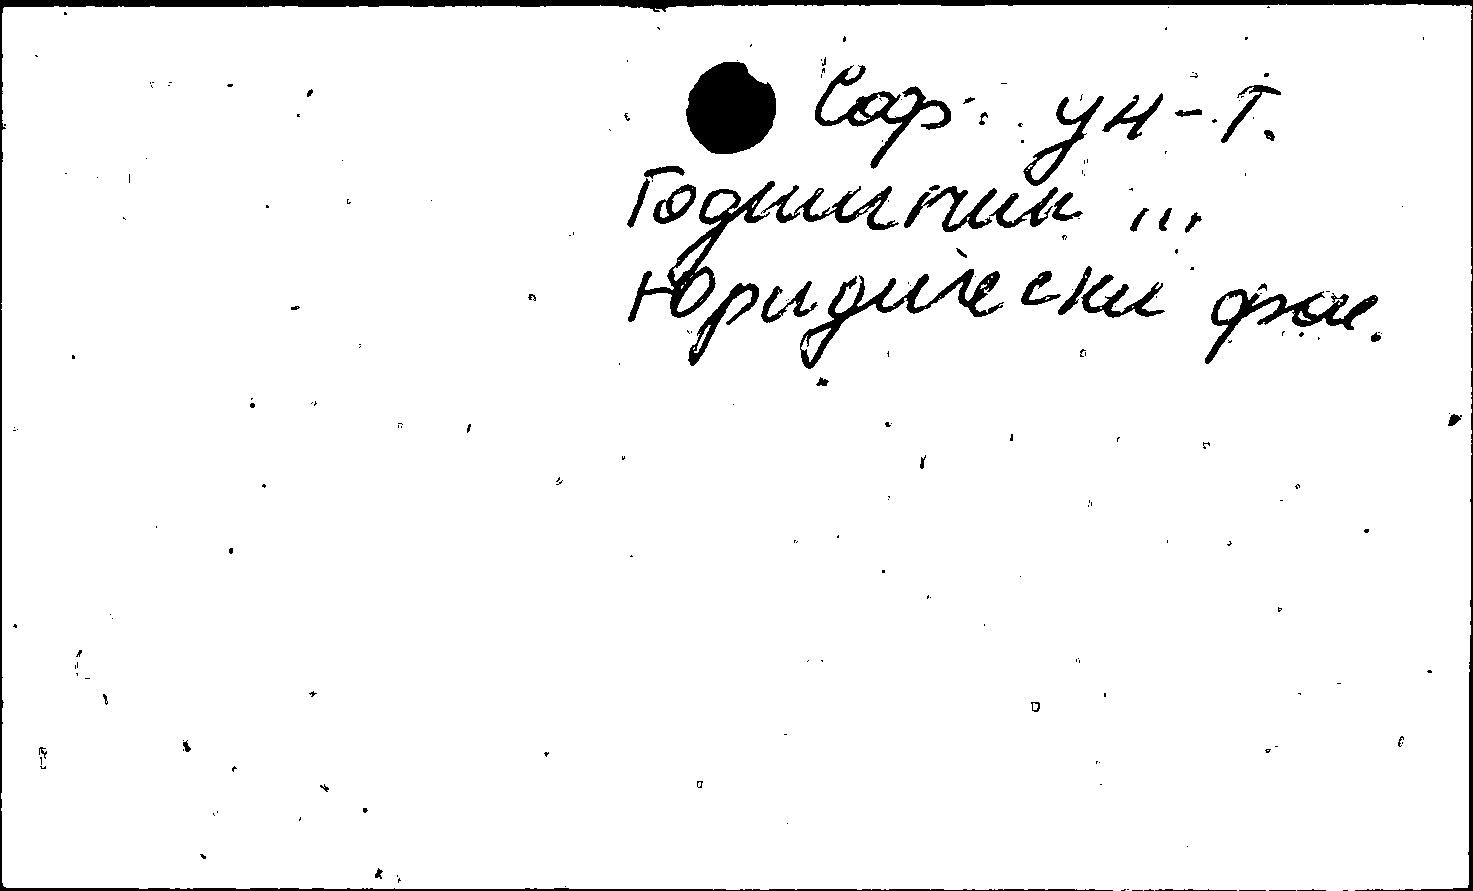 Соф. ун-т.
Годишник ...
Юридически фак.